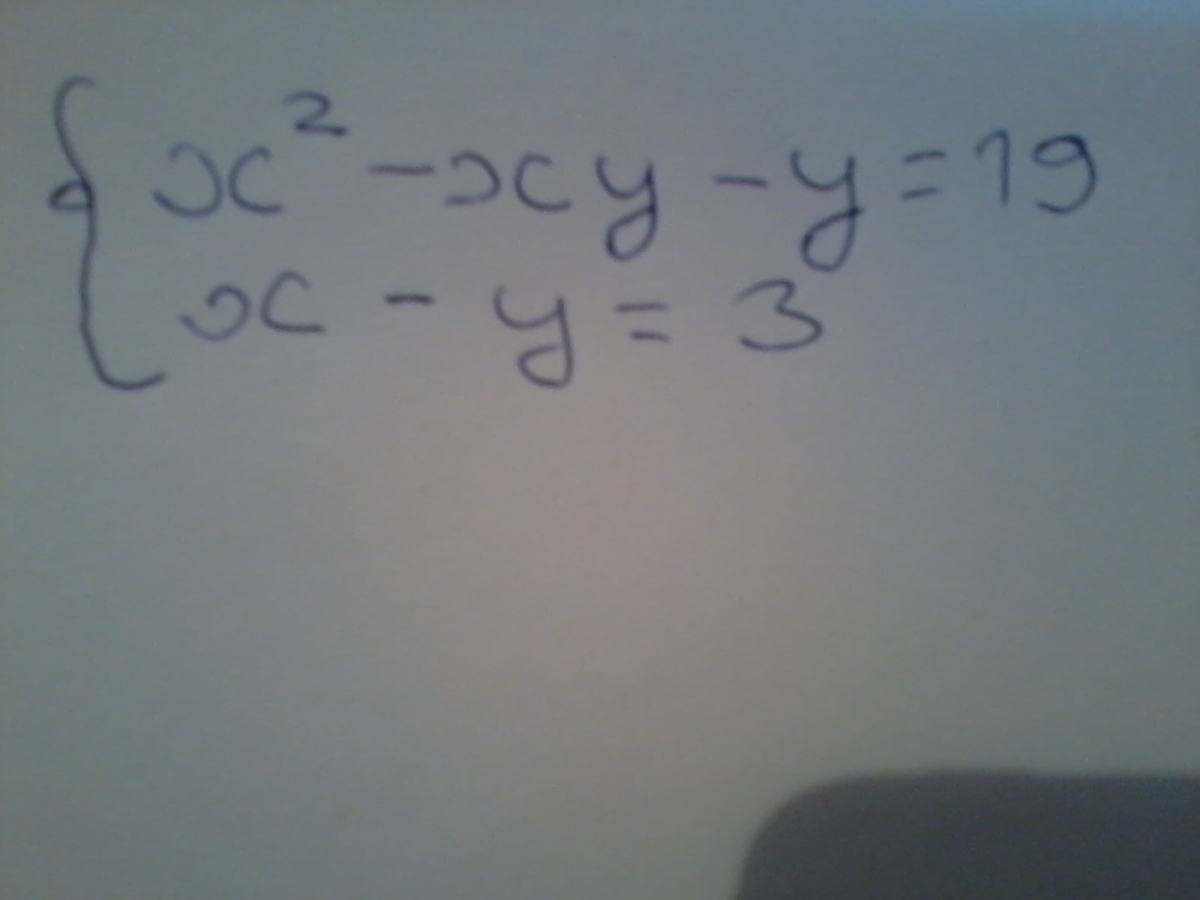 x² - xy - y = 19
x - y = 3